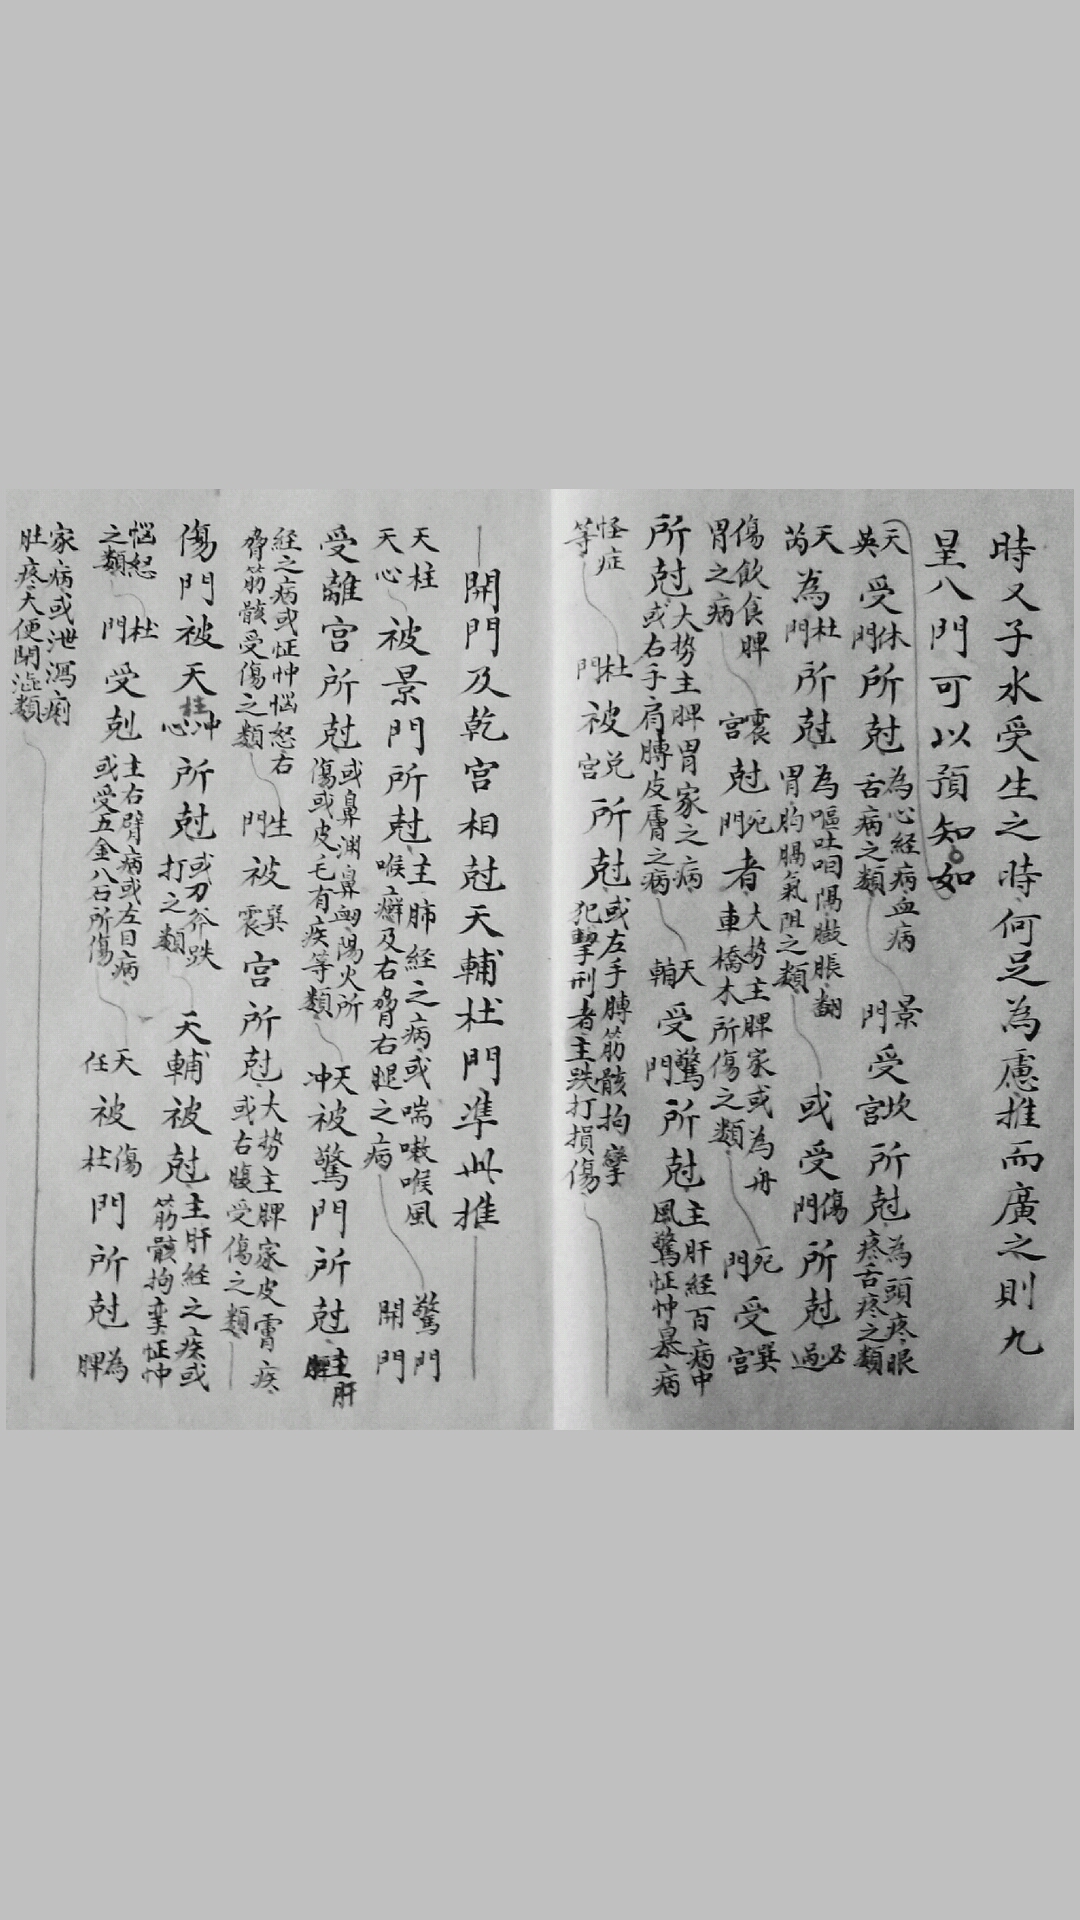 時又子水受生之時何足為慮推而廣之則九
星八門可以預知如
天英受休門所尅為心経病血病舌病之類景門受坎宮所尅為頭疼眼疼舌疼之類
天芮為杜門所尅為嘔吐咽隔臌脹翻胃胸膈氣阻之類或受傷門所尅必過
傷飲食脾胃之病震宮尅死門者大势主脾家或為舟車橋木所傷之類死門受巽宮
所尅大势主脾胃家之病或右手肩膊皮膚之病天輔受驚門所尅主肝経百病中風驚怔忡暴病
怪症等杜門被兌宮所尅或左手膊筋骸拘孿犯擊刑者主跌打損傷
開門及乾宮相尅天輔杜門準此推
天柱天心被景門所尅主肺経之病或喘嗽喉風喉癬及右脅右腿之病驚門開門
受離宮所尅或鼻渊鼻衂陽火所傷或皮毛有疾等類天冲被驚門所尅主肝
経之病或怔忡惱怒右脅筋骸受傷之類生門被巽震宮所尅大势主脾家皮膚疾或右腹受傷之類
傷門被天柱冲心所尅或刀斧跌打之類天輔被尅主肝経之疾或筋骸拘孿怔忡
惱怒之類杜門受尅主右臂病或左目病或受五金八石所傷天任被傷杜門所尅為脾
家病或泄瀉痢肚疼大便閉澁類